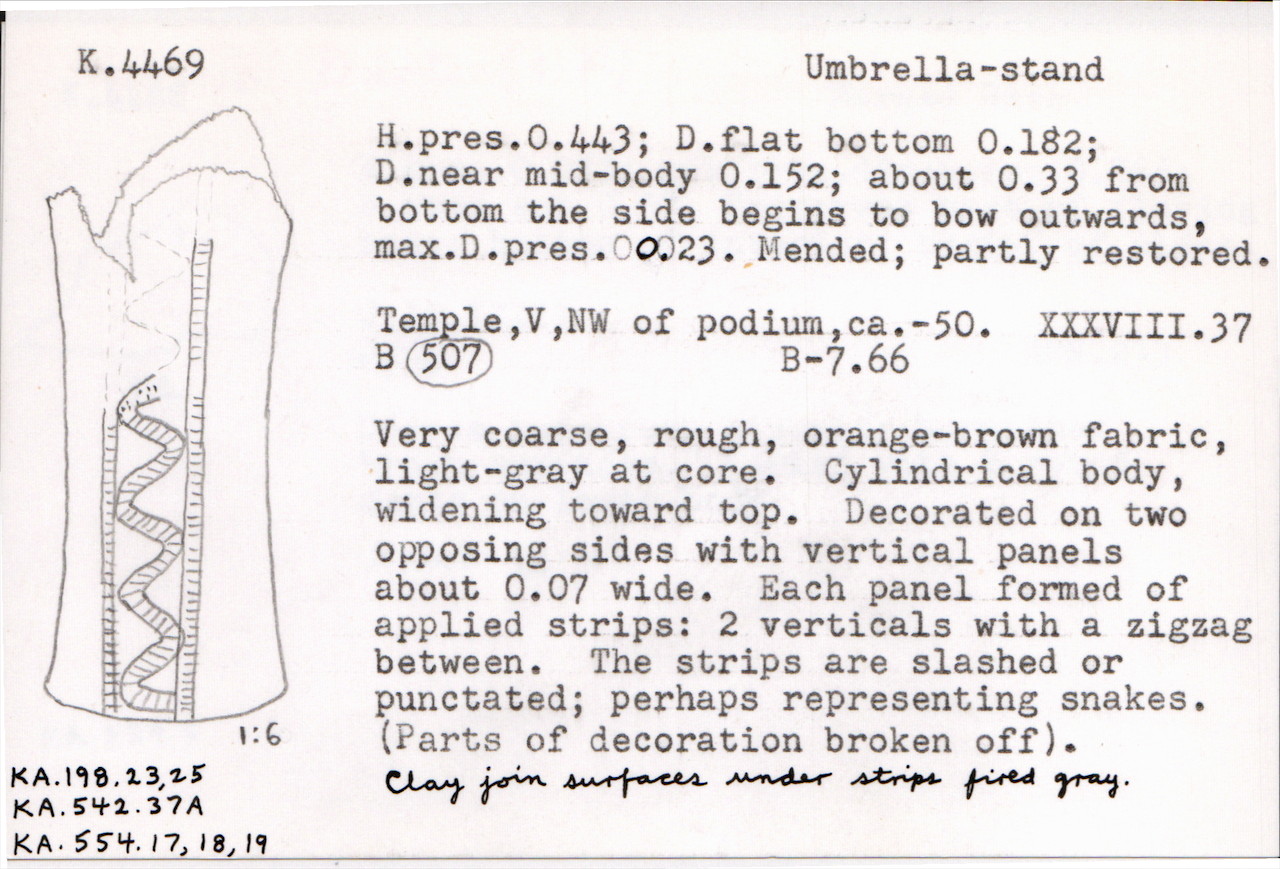 K.4469
Umbrella-stand
H.pres.0.443; D.flat bottom 0.182;
D.near mid-body 0.152; about 0.33 from
bottom the side begins to bow outwards,
max.D.pres. 0.23. Mended; partly restored.
Temple,V,NW of podium,ca.-50. XXXVIII.37
B 507 B-7.66
Very coarse, rough, orange-brown fabric,
light-gray at core. Cylindrical body,
widening toward top. Decorated on two
opposing sides with vertical panels
about 0.07 wide. Each panel formed of
applied strips: 2 verticals with a zigzag
between. The strips are slashed or
punctated; perhaps representing snakes.
(Parts of decoration broken off).
Clay join surfaces under strips fired gray.
1:6
KA.198.23,25
KA.542.37A
KA.554.17,18,19